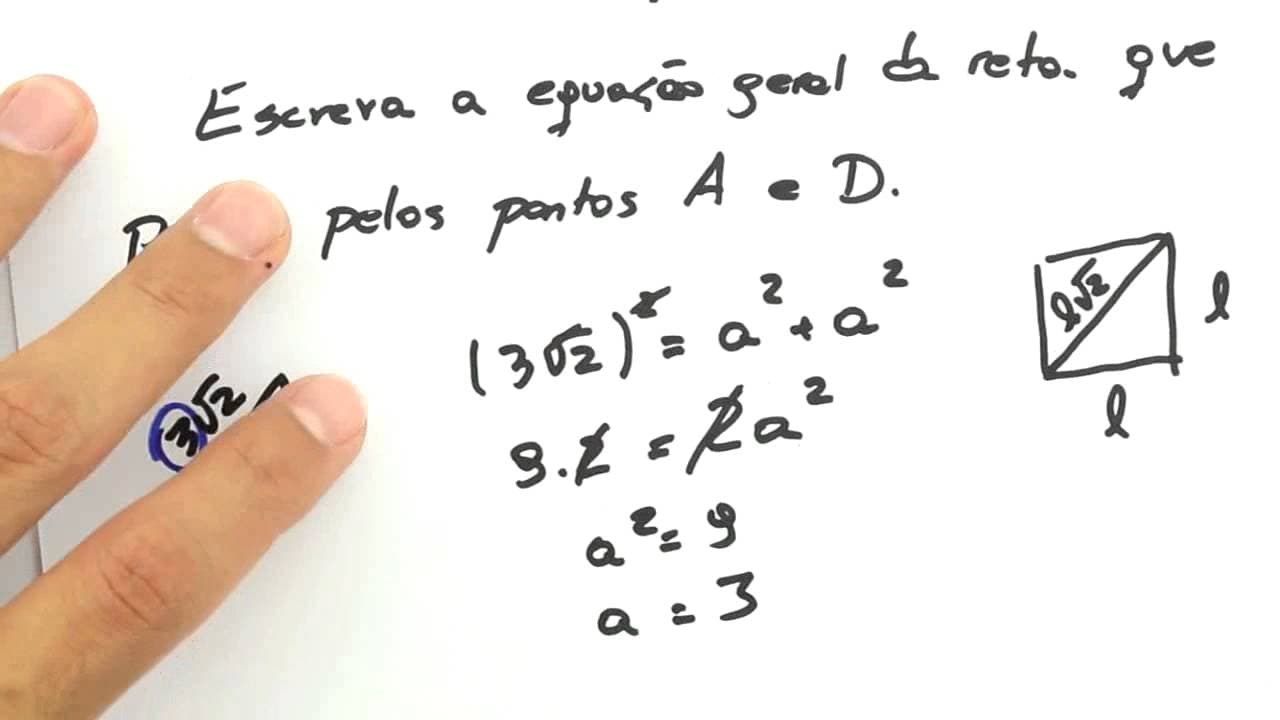 Escreva a equação geral da reta. que
pelos pontos A e D.
(3√2)² = a² + a²
9.2 = 2a²
a² = 9
a = 3
3√2
l√2
l
l